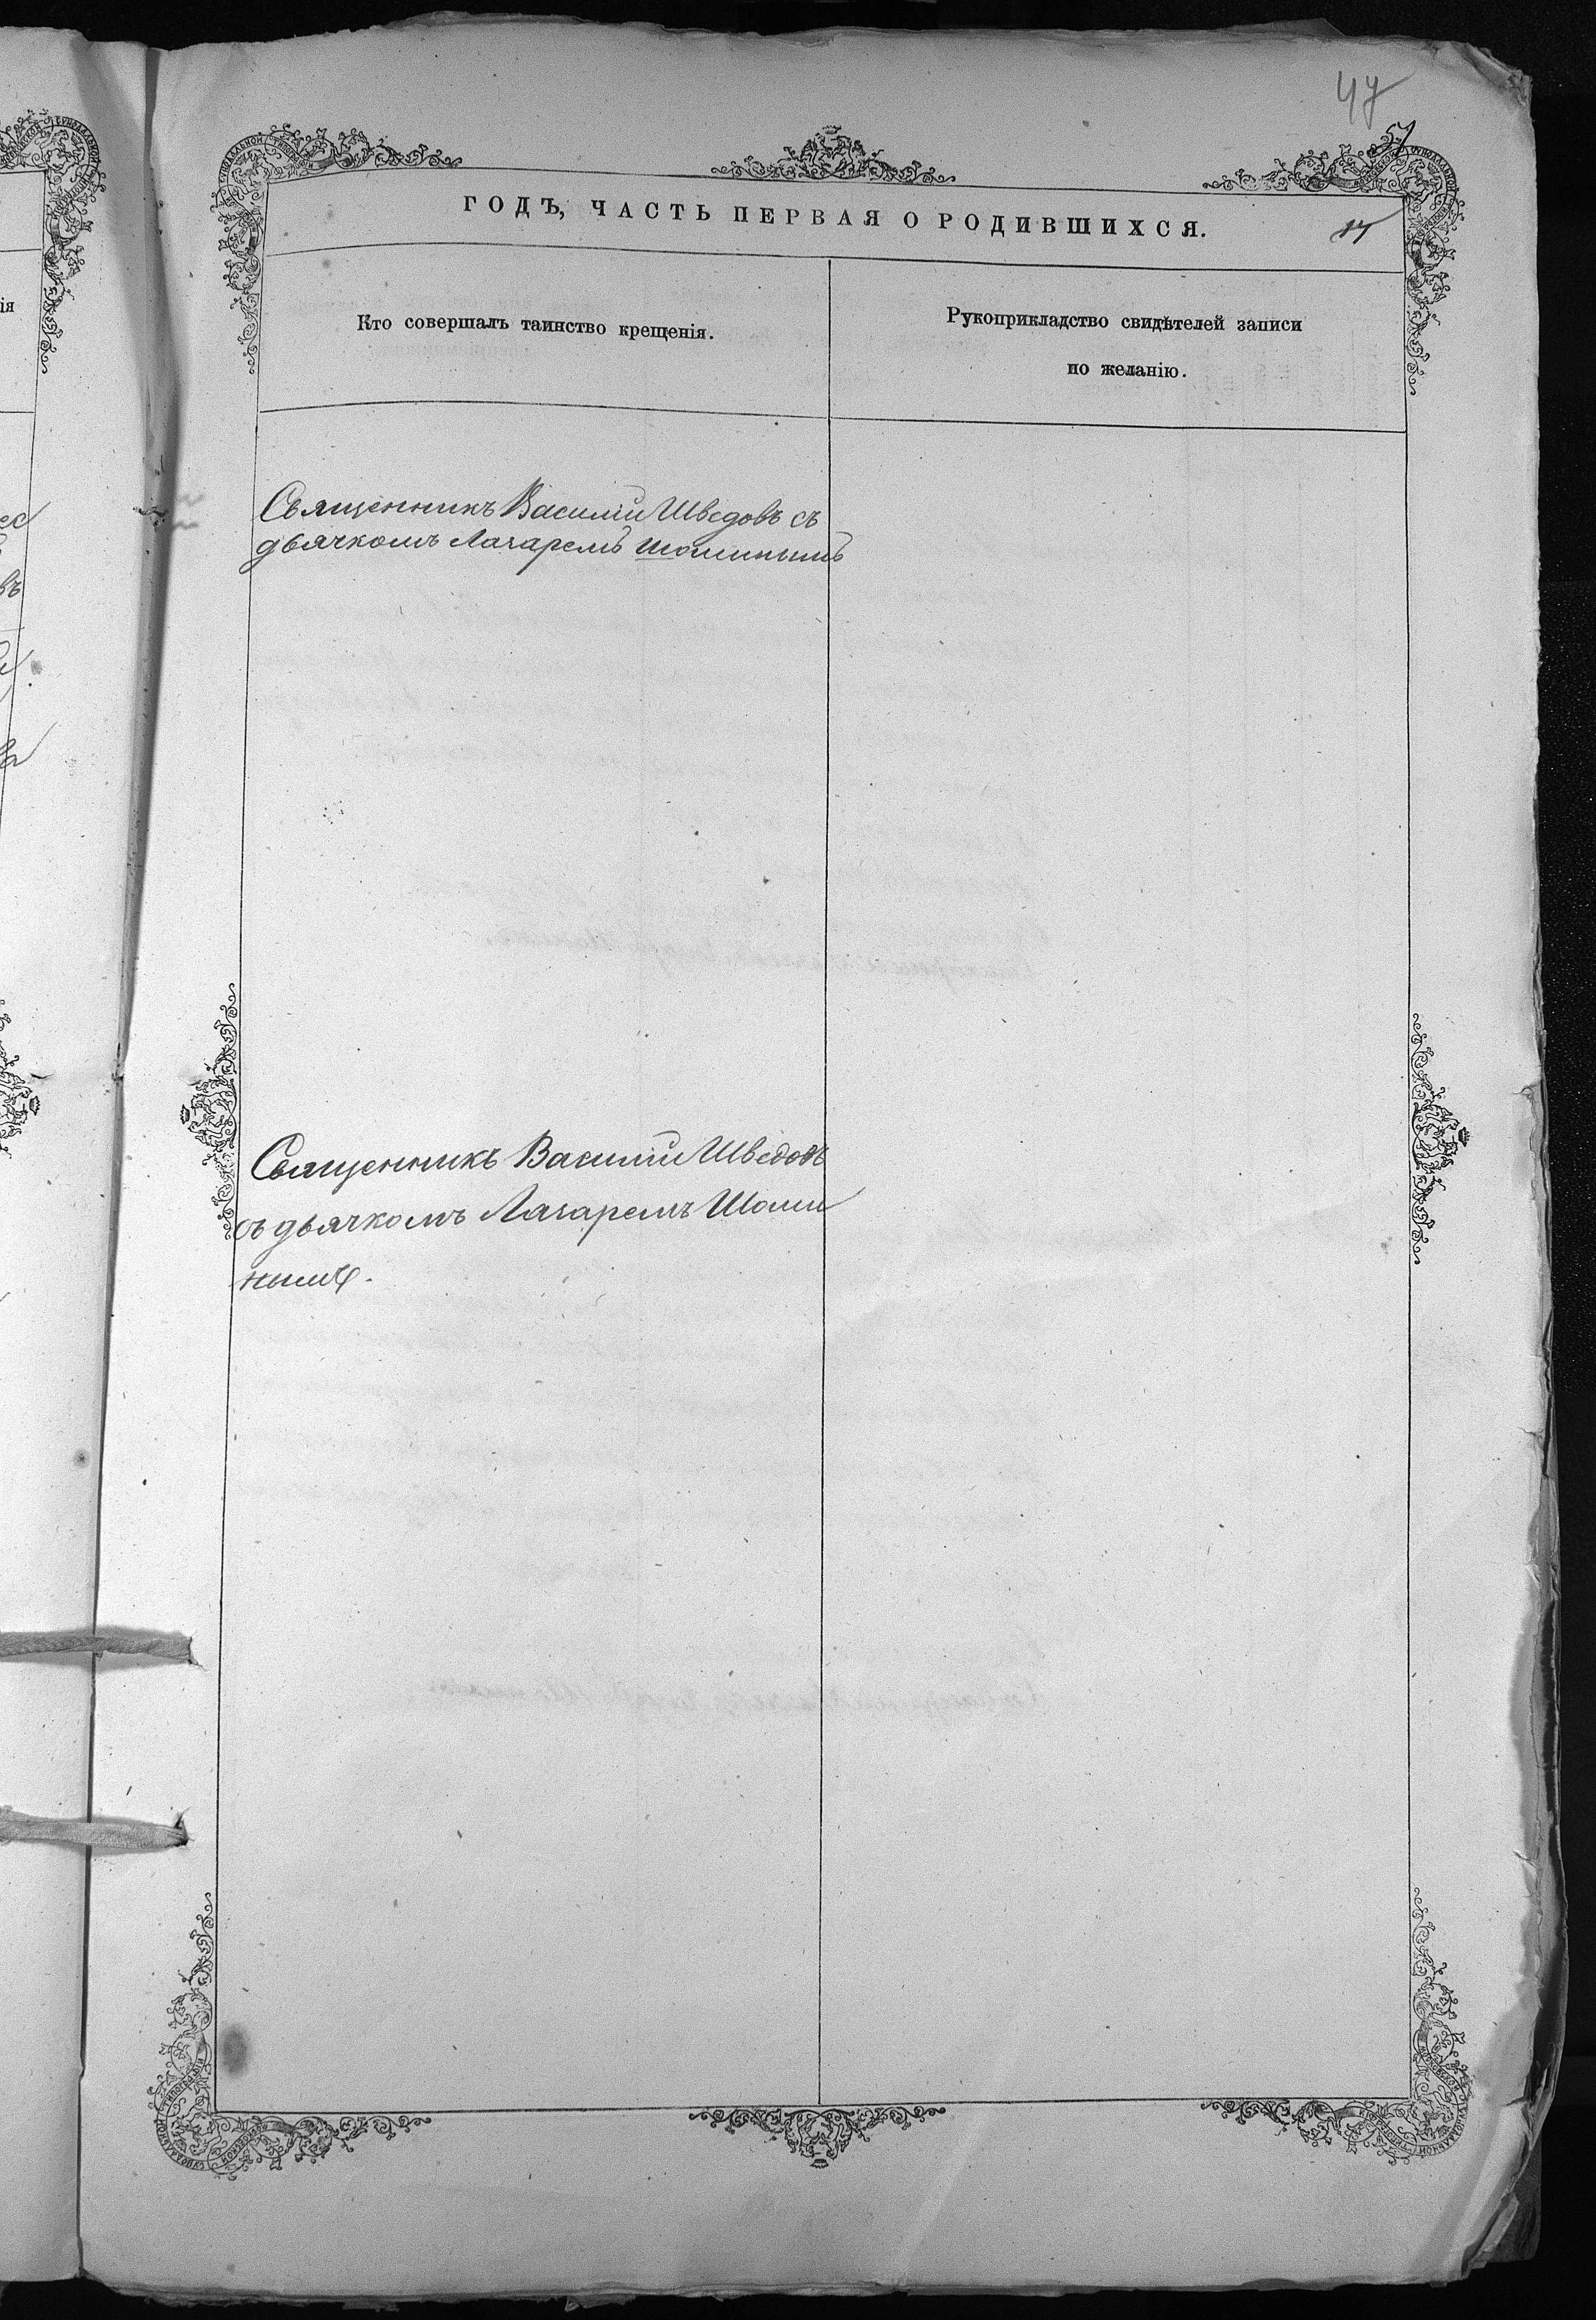 47
51
ГОДЪ, ЧАСТЬ ПЕРВАЯ О РОДИВШИХСЯ.
17
Кто совершалъ таинство крещенія.
Рукоприкладство свидѣтелей записи
по желанію.
Священникъ Василій Шведовъ съ
дьячкомъ Лазаремъ Шоминымъ
Священникъ Василій Шведовъ
съ дьячкомъ Лазаремъ Шоми
нымъ.